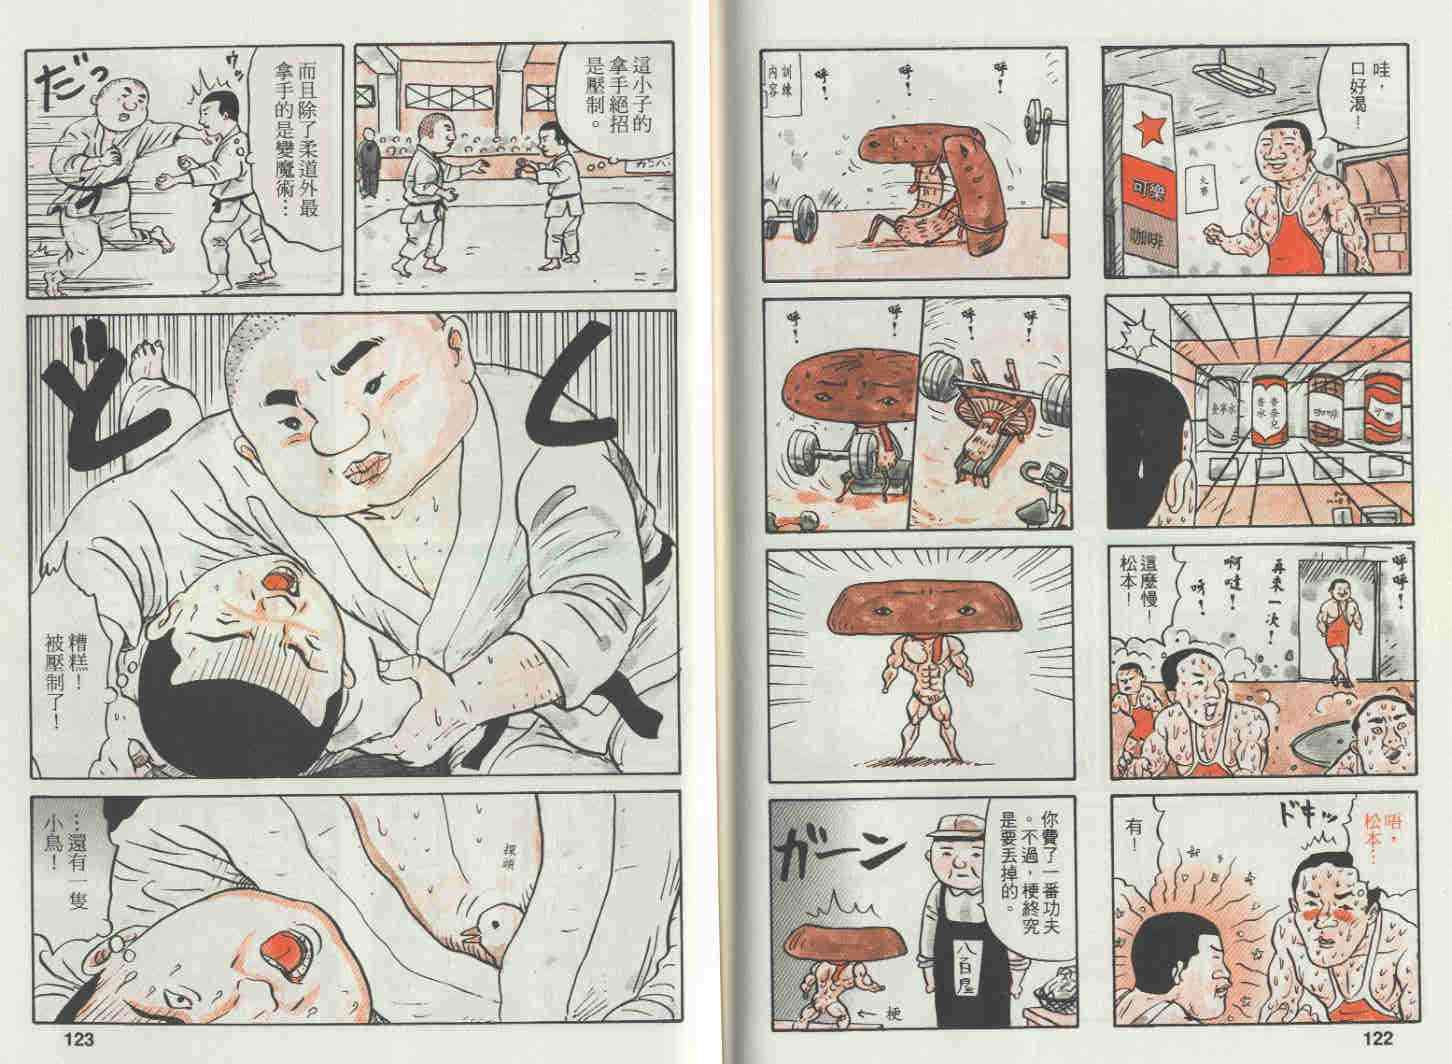 哇，
口好渴…
可樂
咖啡
火事
可樂
咖啡
香奈兒
香水
呼呼！
再來一次！
啊哇！
呼！
這麼慢！
松本！
唔，
松本…
ドキッ
有！
訓練
內容
呼！
呼！
呼！
呼！
呼！
呼！
呼！
你費了一番功夫
。不過，梗終究
是要丟掉的。
ガーン
八百屋
←梗
122
這小子的
拿手絕招
是壓制。
而且除了柔道外最
拿手的是變魔術…
ウッ
だっ
どく
糟糕！
被壓制了！
探頭
…還有一隻
小鳥！
123